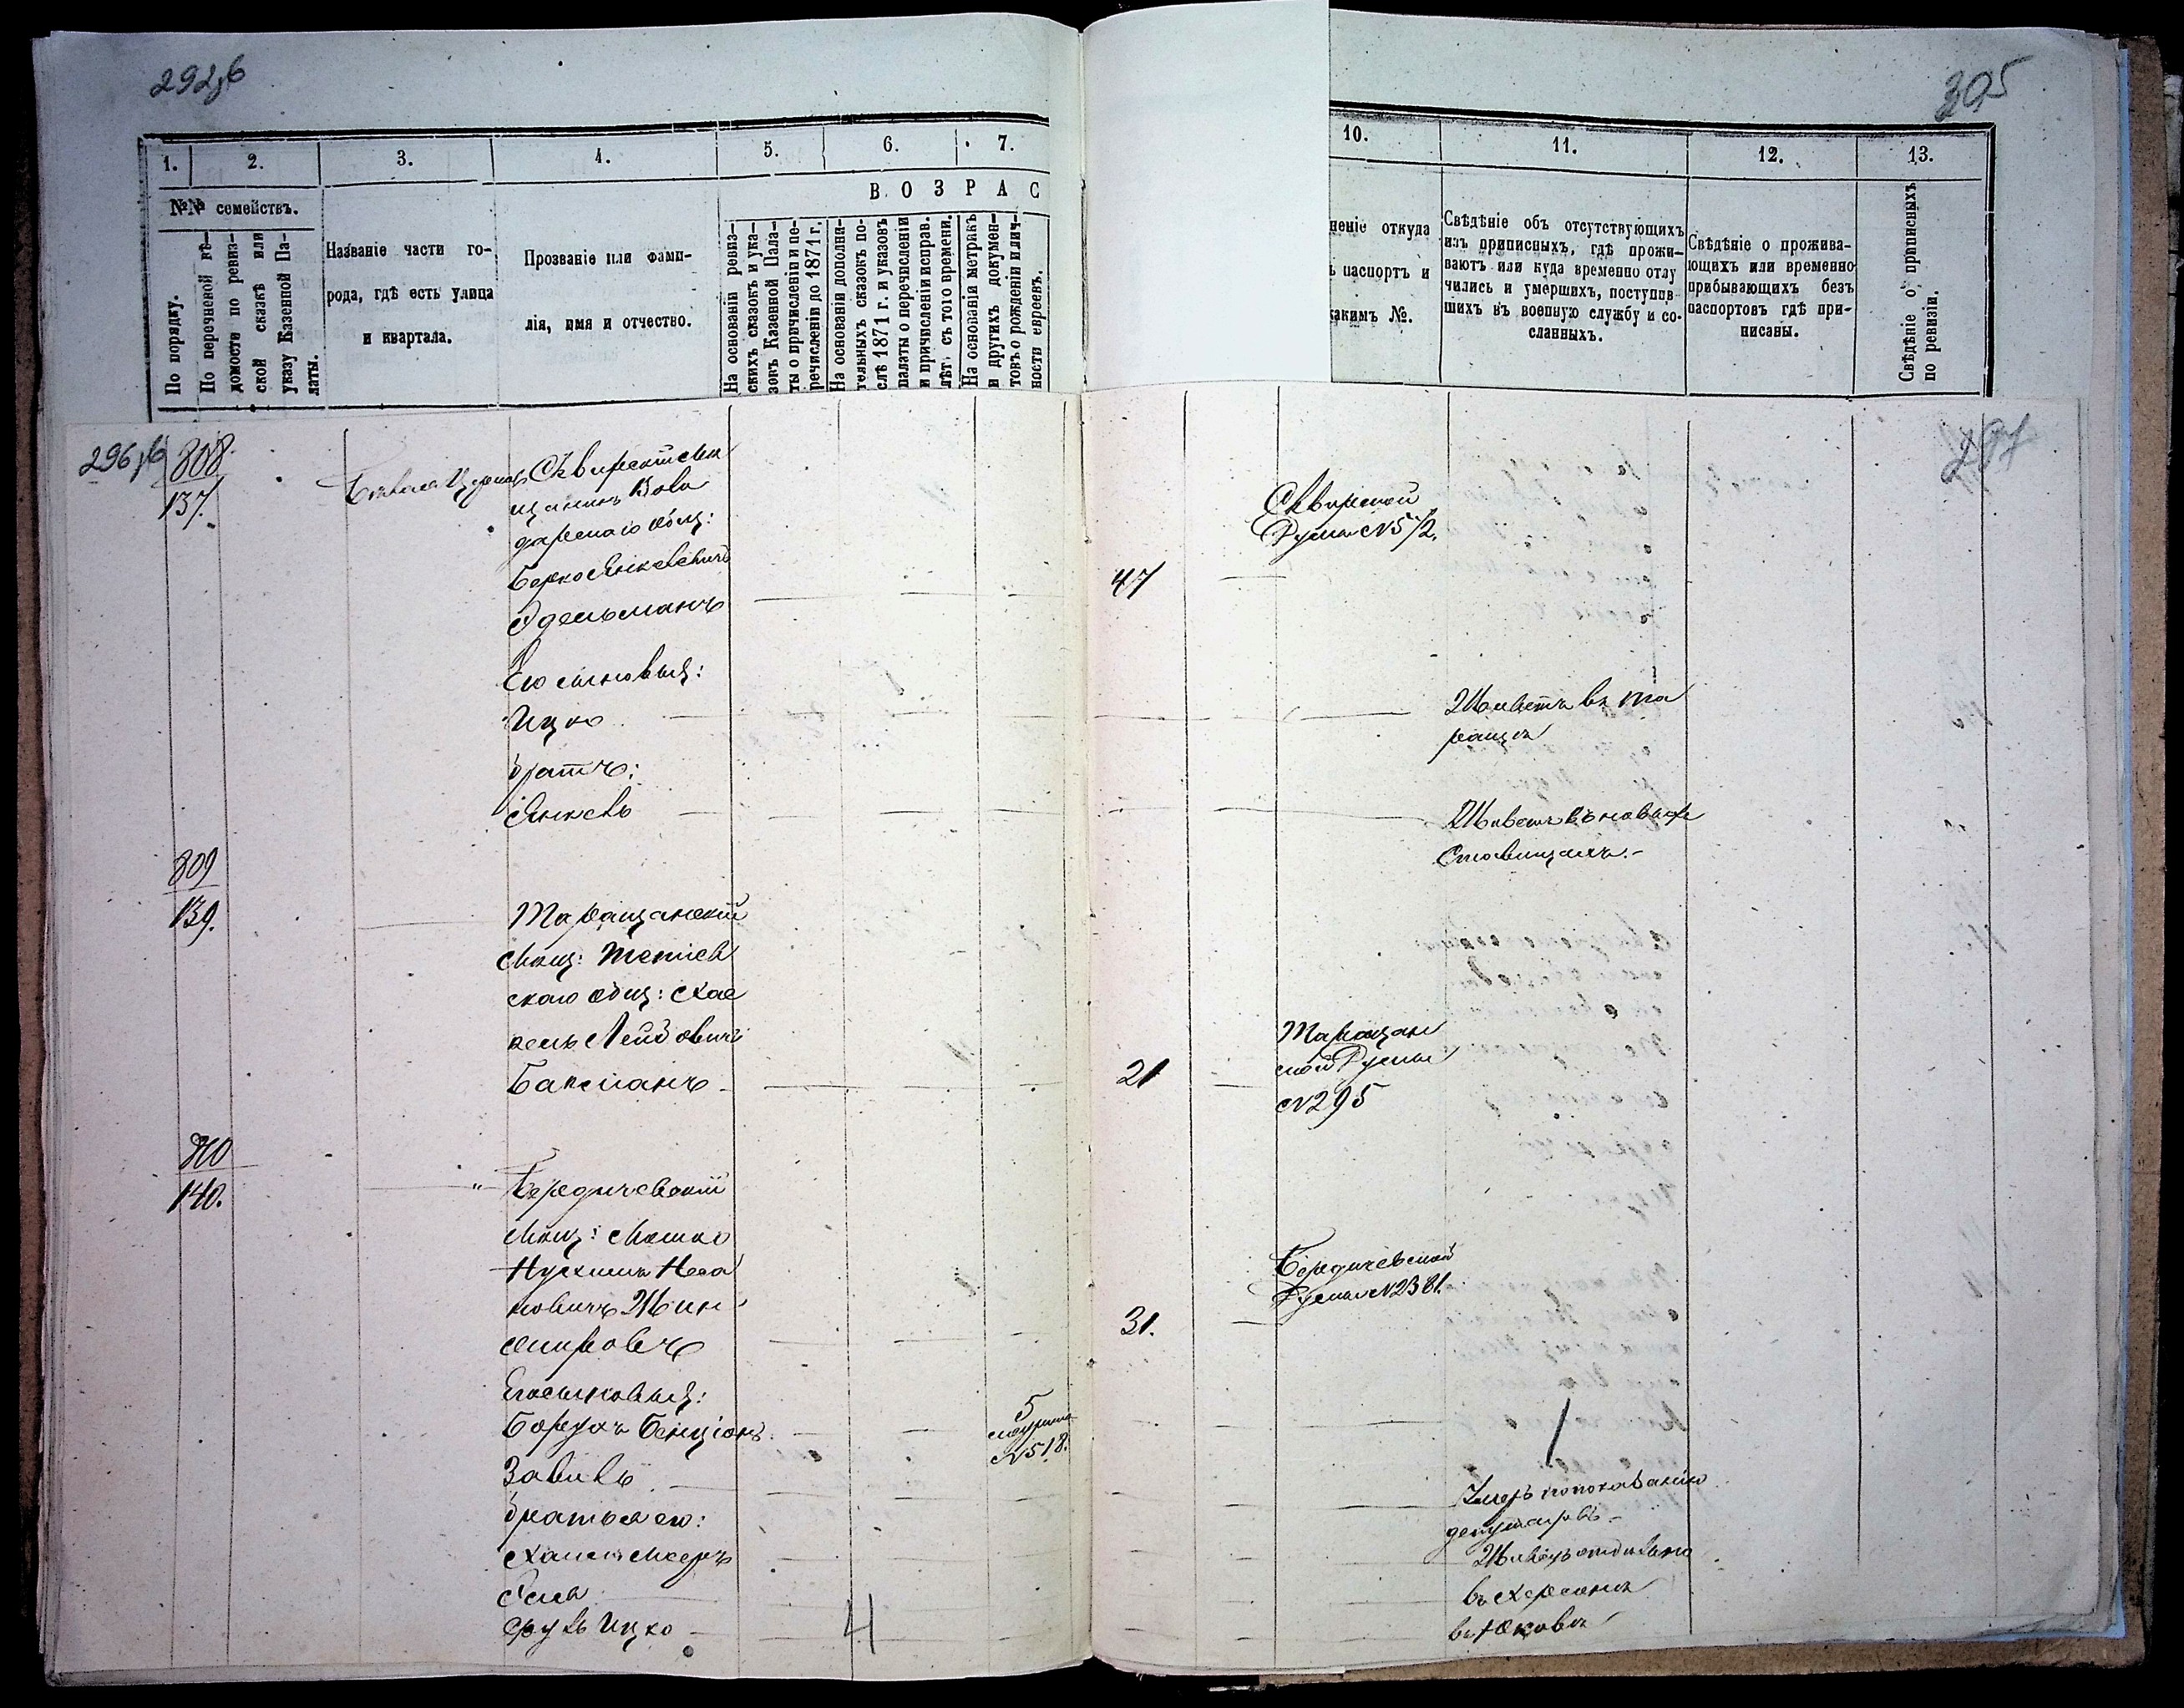 292об
305
1.
2.
3.
4.
5.
6.
7.
10.
11.
12.
13.
№№ семействъ.
По порядку.
По перечневой вѣ-
домости по ревиз-
ской сказкѣ или
указу Казенной Па-
латы.
Названіе части го-
рода, гдѣ есть улица
и квартала.
Прозваніе или фами-
лія, имя и отчество.
В О З Р А С
На основаніи ревиз-
скихъ сказокъ и ука-
зовъ Казенной Пала-
ты о причисленіи и пе-
речисленіи до 1871 г.
На основаніи дополни-
тельныхъ сказокъ по-
слѣ 1871 г. и указовъ
палаты о перечисленіи
и причисленіи исправ.
лѣт. съ того времени.
На основаніи метрикъ
и другихъ докумен-
товъ о рожденіи и лич-
ности евреевъ.
неніе откуда
ъ паспортъ и
какимъ №.
Свѣдѣніе объ отсутствующихъ
изъ приписныхъ, гдѣ прожи-
ваютъ или куда временно отлу
чились и умершихъ, поступив-
шихъ въ военную службу и со-
сланныхъ.
Свѣдѣніе о прожива-
ющихъ или временно
прибывающихъ безъ
паспортовъ гдѣ при-
писаны.
Свѣдѣніе о приписныхъ
по ревизіи.
296об
808
137.
Бѣлая Церковь
Сквирскій мѣ
щанинъ Воло
дарскаго общ:
Берко Янкелевичъ
Эдельманъ
47
Сквирской
Думы №572.
Его сыновья:
Ицко
Живетъ въ Та
ращѣ
братъ:
Янкель
Живетъ въ новыхъ
Ставищахъ.-
809
139.
Таращанскій
мѣщ: Тетіев
скаго общ: Хас
кель Лейбовичъ
Баксманъ
21
Таращан
ской Думы
№295
810
140.
" Бердичевскій
мѣщ: Мошко
Нухимъ
31.
Бердичевской
Думы №2381.
Его сыновья:
Борухъ Бенціонъ
5
№518.
Завель
Умеръ по показанію
братья его:
Хаимъ Мееръ
въ Херсонѣ
Сруль Ицко
4